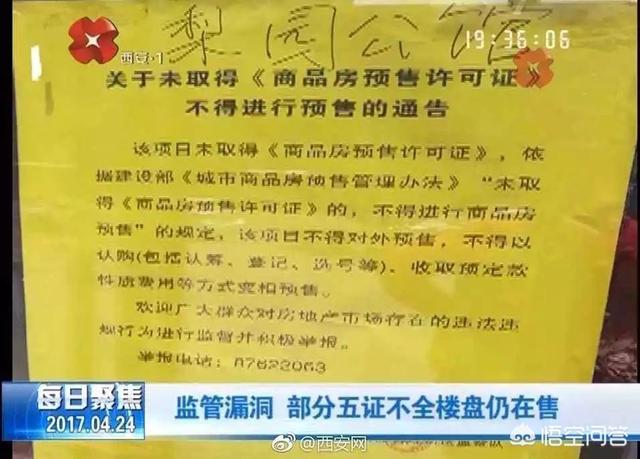 梨园公馆
西安·1
19:36:06
关于未取得《商品房预售许可证》
不得进行预售的通告
该项目未取得《商品房预售许可证》，依
据建设部《城市商品房预售管理办法》“未取
得《商品房预售许可证》的，不得进行商品房
预售”的规定，该项目不得对外预售，不得以
认购(包括认筹、登记、选号等)、收取预定款
性质费用等方式变相预售。
欢迎广大群众对房地产市场存在的违法违
规行为进行监督并积极举报。
举报电话：87622063
每日聚焦
2017.04.24
监管漏洞 部分五证不全楼盘仍在售
@西安网
悟空问答